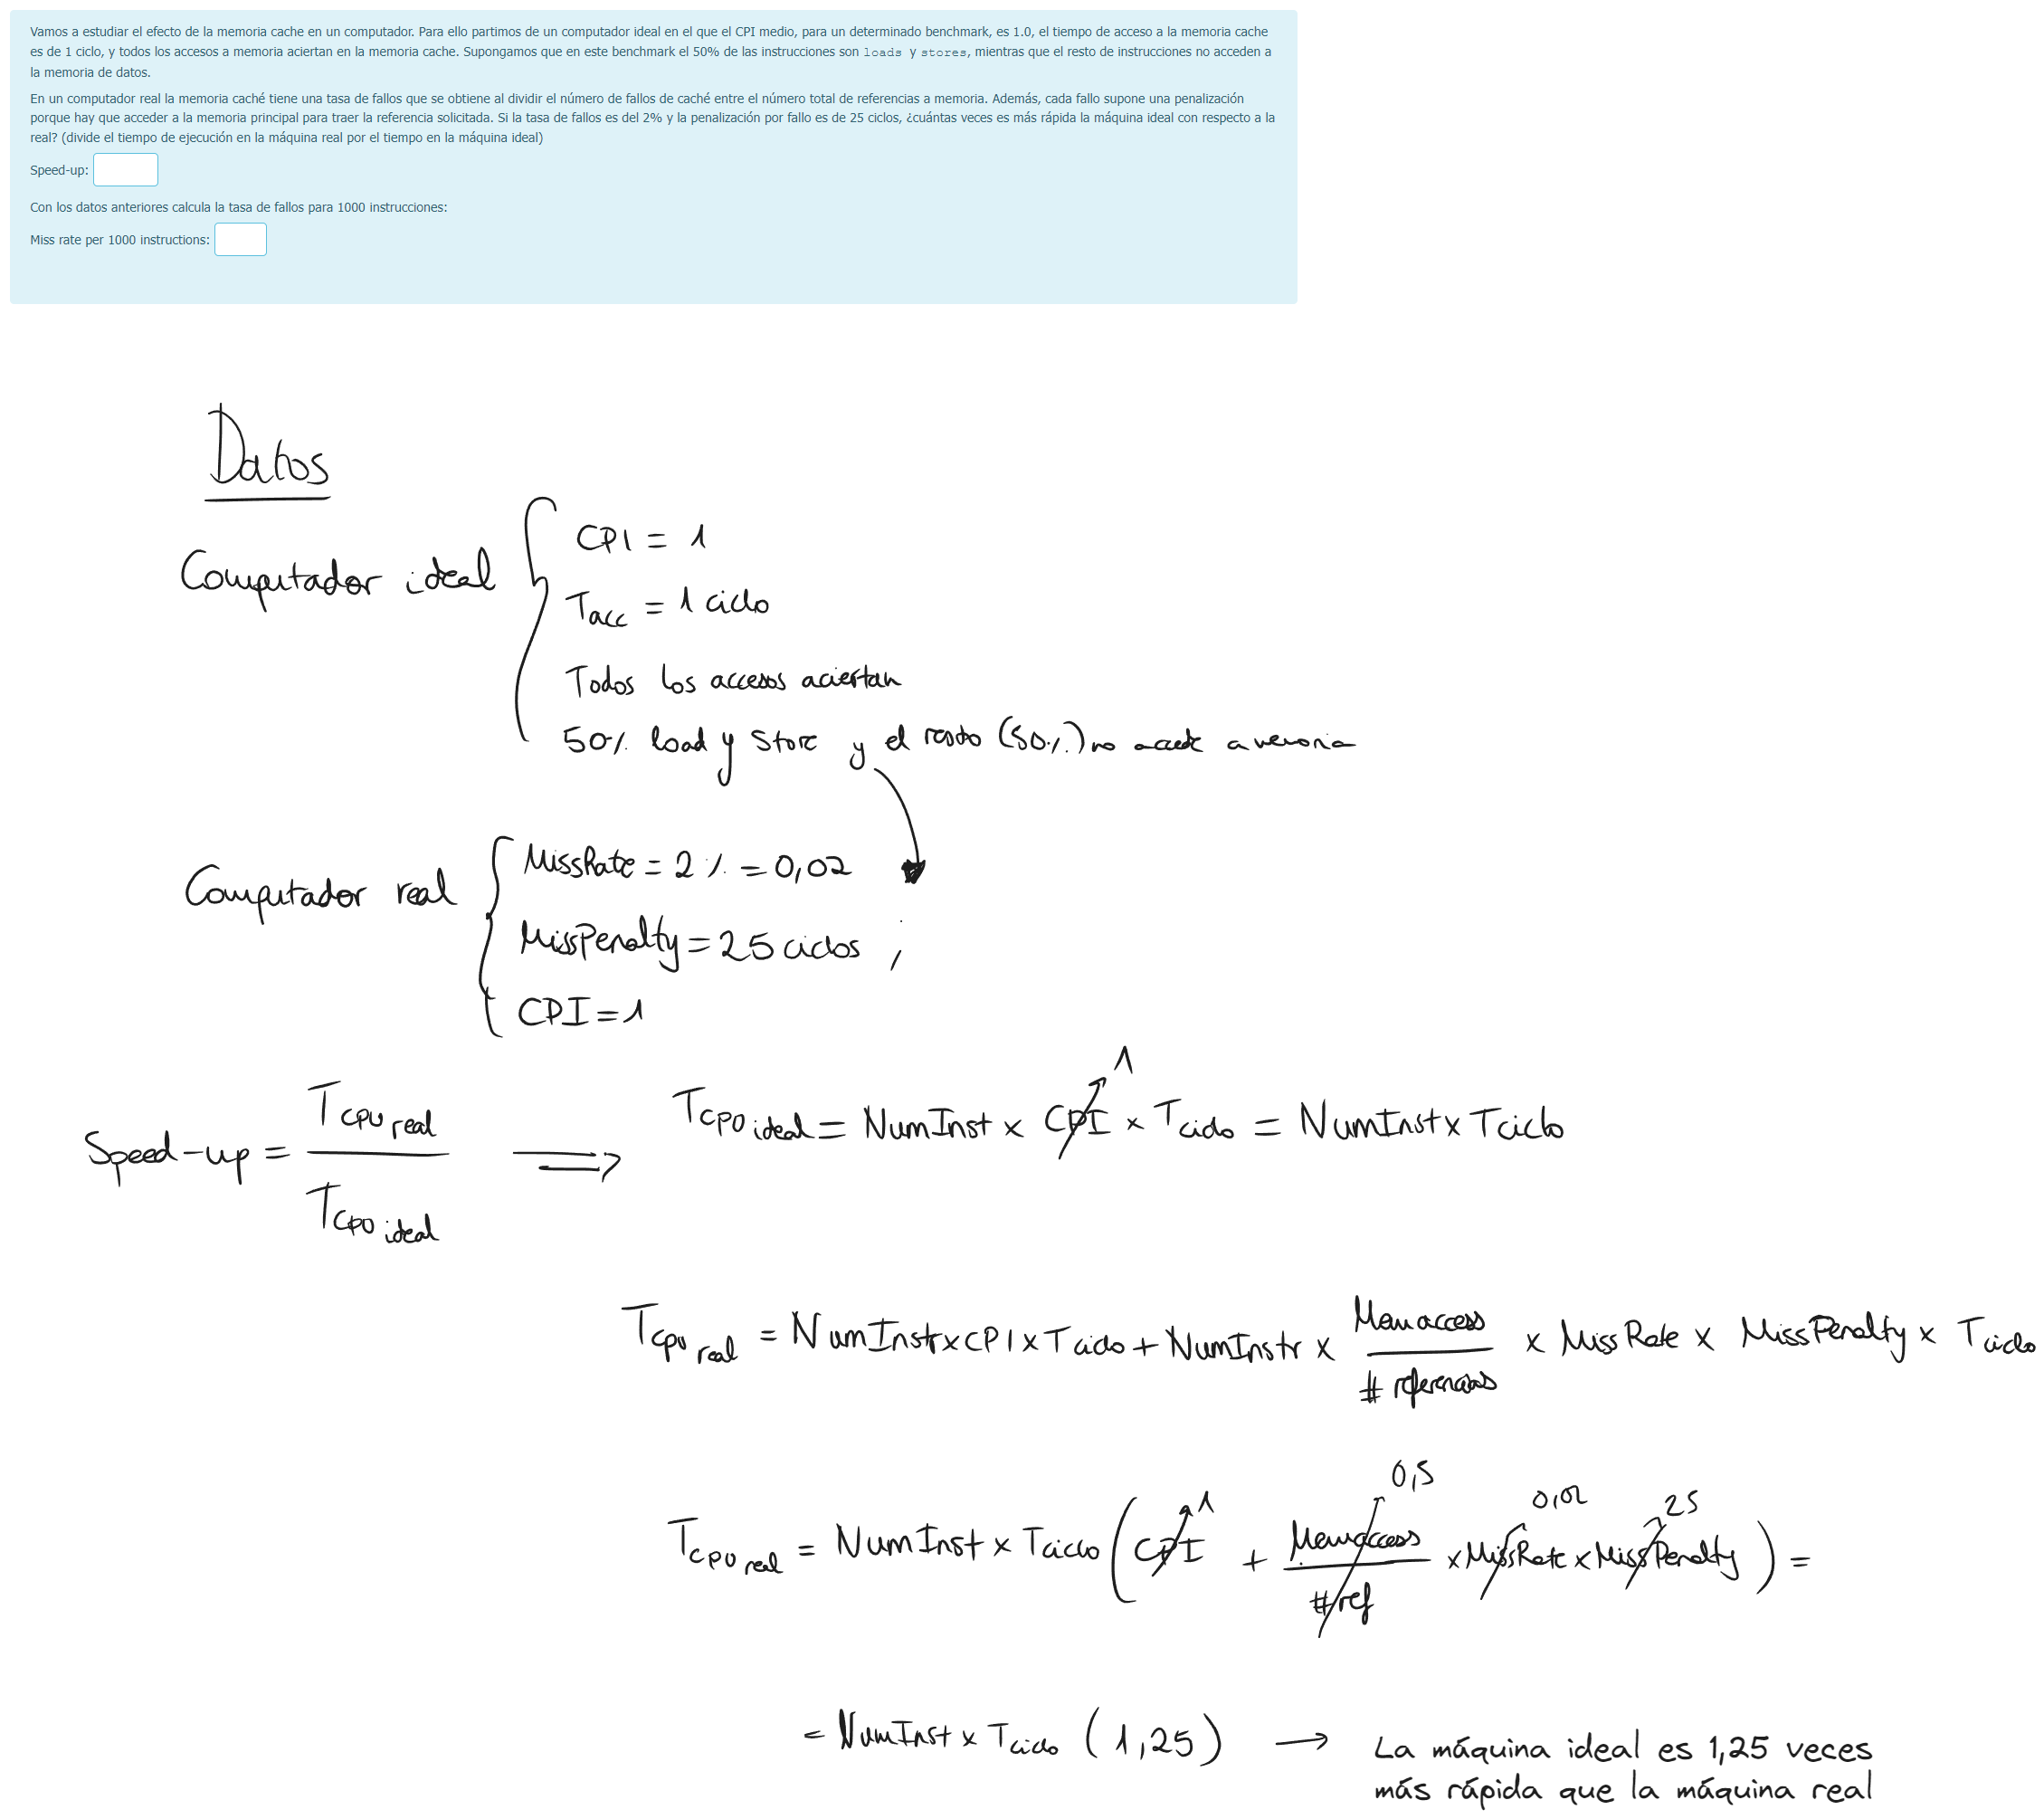 Vamos a estudiar el efecto de la memoria cache en un computador. Para ello partimos de un computador ideal en el que el CPI medio, para un determinado benchmark, es 1.0, el tiempo de acceso a la memoria cache
es de 1 ciclo, y todos los accesos a memoria aciertan en la memoria cache. Supongamos que en este benchmark el 50% de las instrucciones son loads y stores, mientras que el resto de instrucciones no acceden a
la memoria de datos.
En un computador real la memoria caché tiene una tasa de fallos que se obtiene al dividir el número de fallos de caché entre el número total de referencias a memoria. Además, cada fallo supone una penalización
porque hay que acceder a la memoria principal para traer la referencia solicitada. Si la tasa de fallos es del 2% y la penalización por fallo es de 25 ciclos, ¿cuántas veces es más rápida la máquina ideal con respecto a la
real? (divide el tiempo de ejecución en la máquina real por el tiempo en la máquina ideal)
Speed-up:
Con los datos anteriores calcula la tasa de fallos para 1000 instrucciones:
Miss rate per 1000 instructions:
Datos
Computador ideal
CPI = 1
Tacc = 1 ciclo
Todos los accesos aciertan
50% load y store y el resto (50%) no accede a memoria
Computador real
MissRate = 2% = 0,02
MissPenalty = 25 ciclos ;
CPI = 1
Speed-up = Tcpu real / Tcpu ideal ⟹ Tcpu ideal = NumInst x CPI 1 x Tciclo = NumInst x Tciclo
Tcpu real = NumInstr x CPI x Tciclo + NumInstr x Memaccess / # referencias x MissRate x MissPenalty x Tciclo
Tcpu real = NumInst x Tciclo ( CPI 1 + Memaccess / #ref 0,5 x MissRate 0,02 x MissPenalty 25 ) =
= NumInst x Tciclo ( 1,25 ) → La máquina ideal es 1,25 veces
más rápida que la máquina real